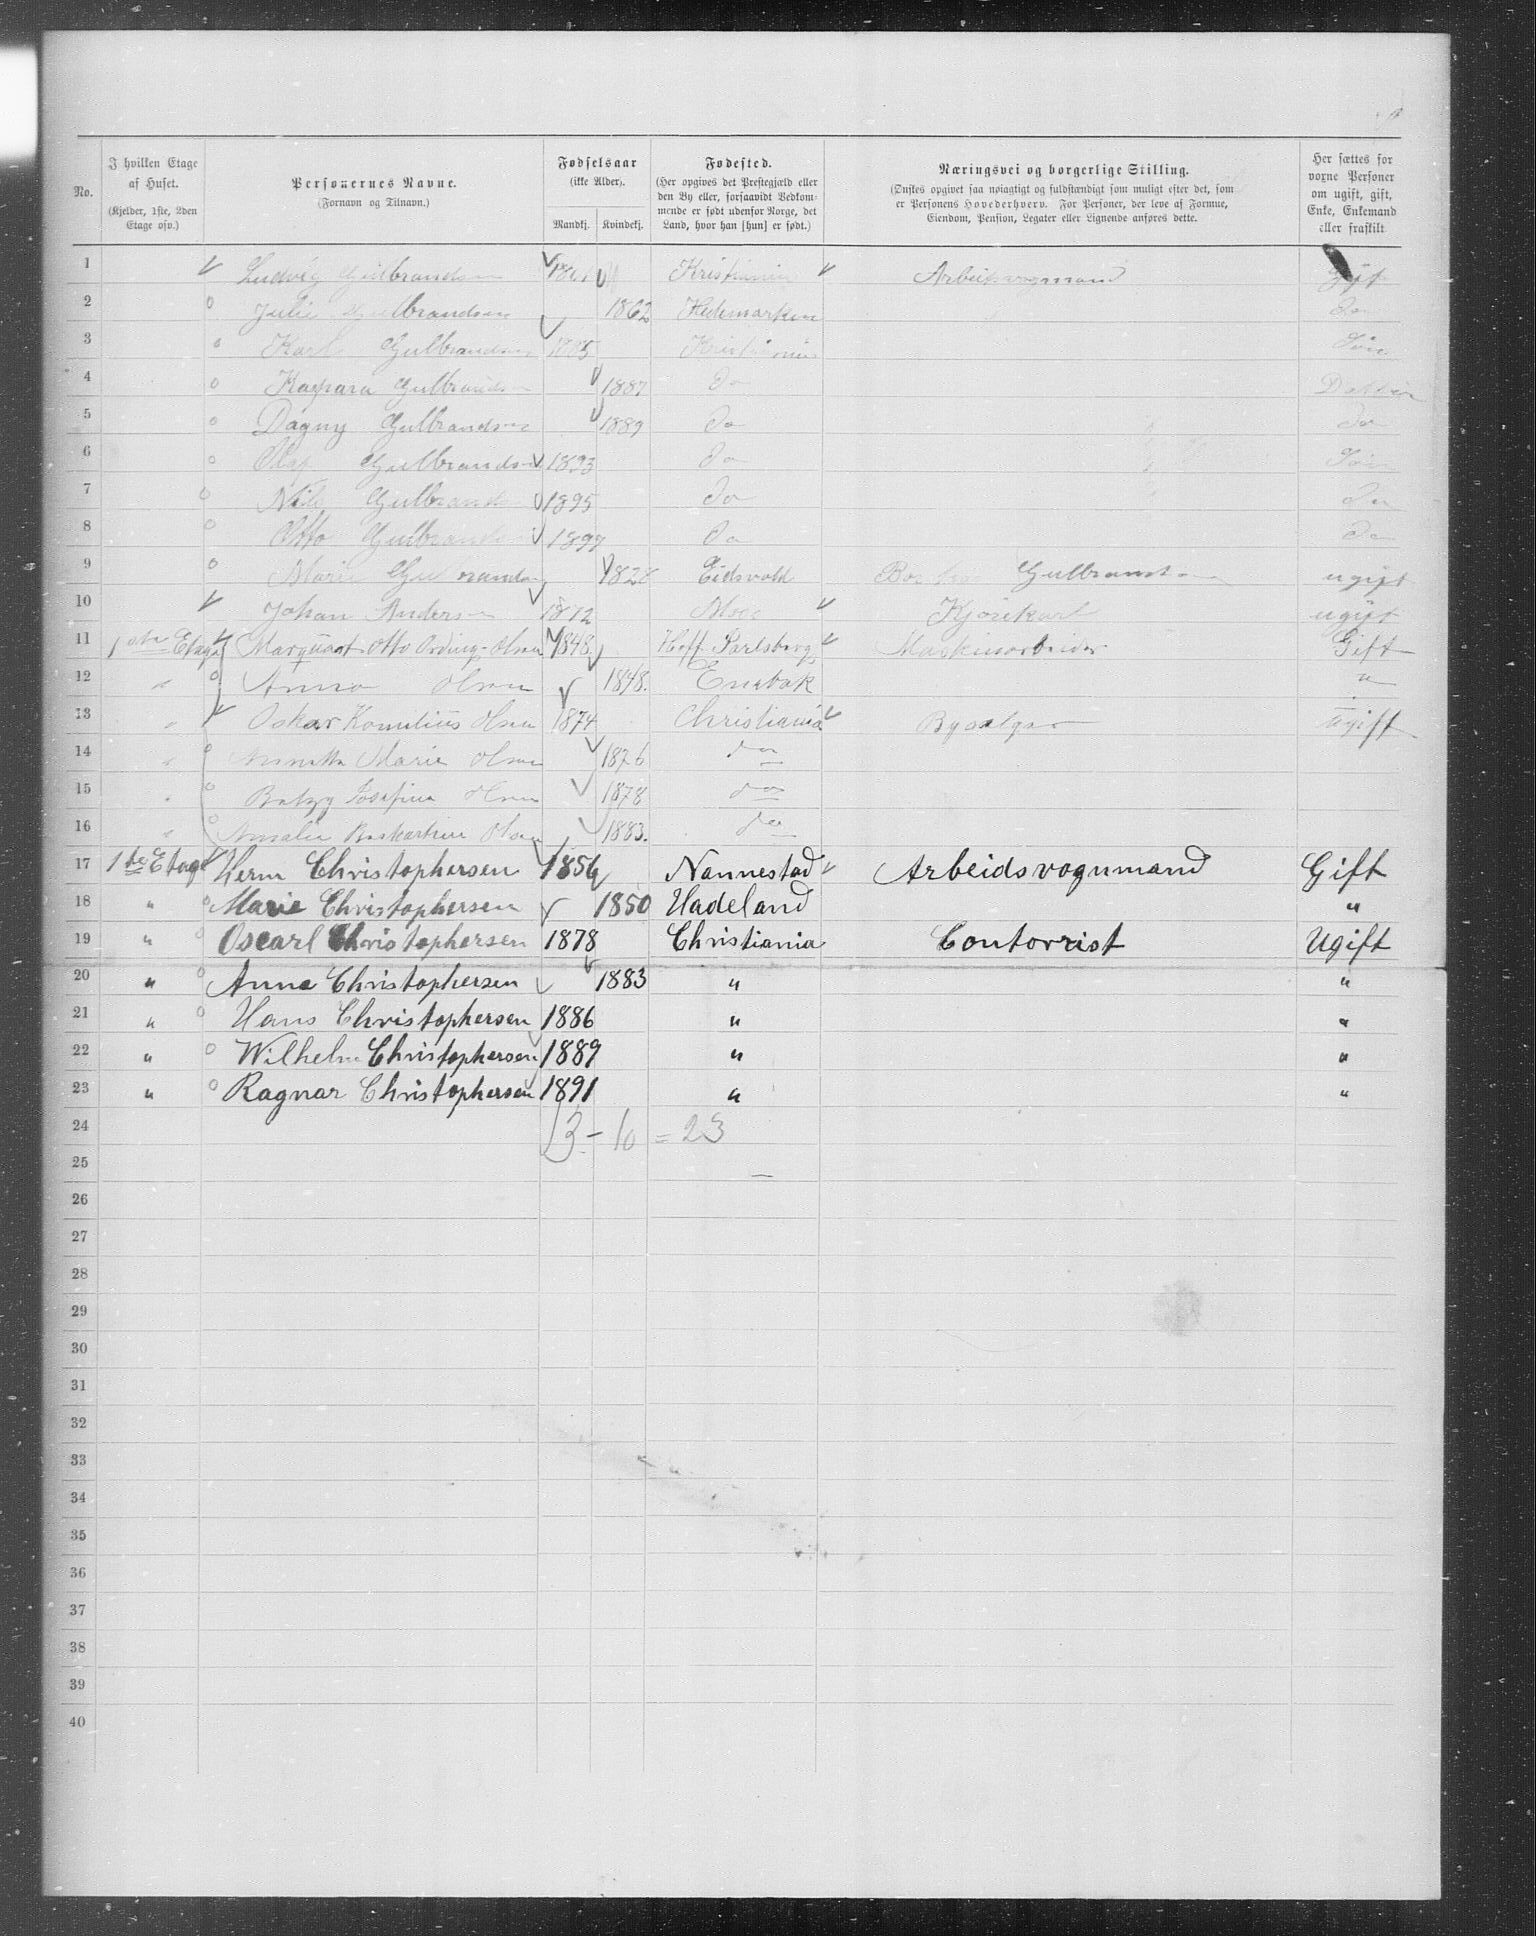 No.
I hvilken Etage af Huset. (Kjelder, 1ste, 2den Etage osv.)
Personernes Navne. (Fornavn og Tilnavn.)
Fødselsaar (ikke Alder). Mandkj. Kvindekj.
Fødested. (Her opgives det Prestegjæld eller den By eller, forsaavidt Vedkommende er født udenfor Norge, det Land, hvor han [hun] er født.)
Næringsvei og borgerlige Stilling. (Ønskes opgivet saa nøiagtigt og fuldstændigt som muligt efter det, som er Personens Hovederhverv. For Personer, der leve af Formue, Eiendom, Pension, Legater eller Lignende anføres dette.)
Her sættes for voxne Personer om ugift, gift, Enke, Enkemand eller fraskilt
1 Ludvig Gulbrandsen Kristiania Arbeidsvognmand Gift
2 Julie Gulbrandsen 1862 Hedemarken Do
3 Karl Gulbrandsen 1885 Kristiania Søn
4 Kaspara Gulbrandsen 1887 Do Datter
5 Dagny Gulbrandsen 1889 Do Do
6 Gulbrandsen 1893 Do Søn
7 Nils Gulbrandsen 1895 Do Do
8 Otto Gulbrandsen 1897 Do Do
9 Marie Gulbrandsen Eidsvold Gulbrandsen ugift
10 Johan Andersen 1872 Moss Kjørekarl ugift
11 1ste Etage Otto Olsen 1848. Hoff Jarlsberg Maskinarbeider Gift
12 " Anna Olsen 1848. Enebak "
13 " Oskar Kornelius Olsen 1874 Christiania Bysælger Ugift
14 " Marie Olsen 1876 do
15 " Josefine Olsen 1878 do
16 " Amalie Olsen 1883. do
17 1ste Etage Herm Christophersen 1856 Nannestad Arbeidsvognmand Gift
18 " Marie Christophersen 1850 Hadeland "
19 " Oscarl Christophersen 1878 Christiania Contorrist Ugift
20 " Anna Christophersen 1883 " "
21 " Hans Christophersen 1886 " "
22 " Wilhelm Christophersen 1889 " "
23 " Ragnar Christophersen 1891 " "
24 13 - 10 = 23
25
26
27
28
29
30
31
32
33
34
35
36
37
38
39
40